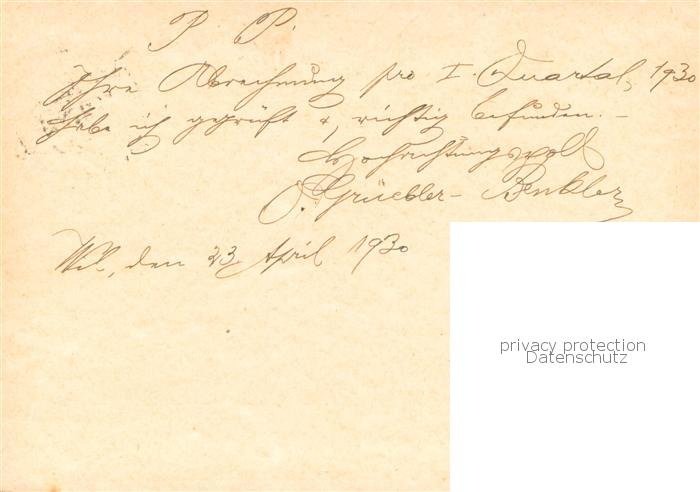 P. P.
Ihre Abrechnung pro I. Quartal, 1930
habe ich geprüft &, richtig befunden. –
Hochachtungsvoll
O. Grüebler-Benkler
Wil, den 23. April 1930
privacy protection
Datenschutz